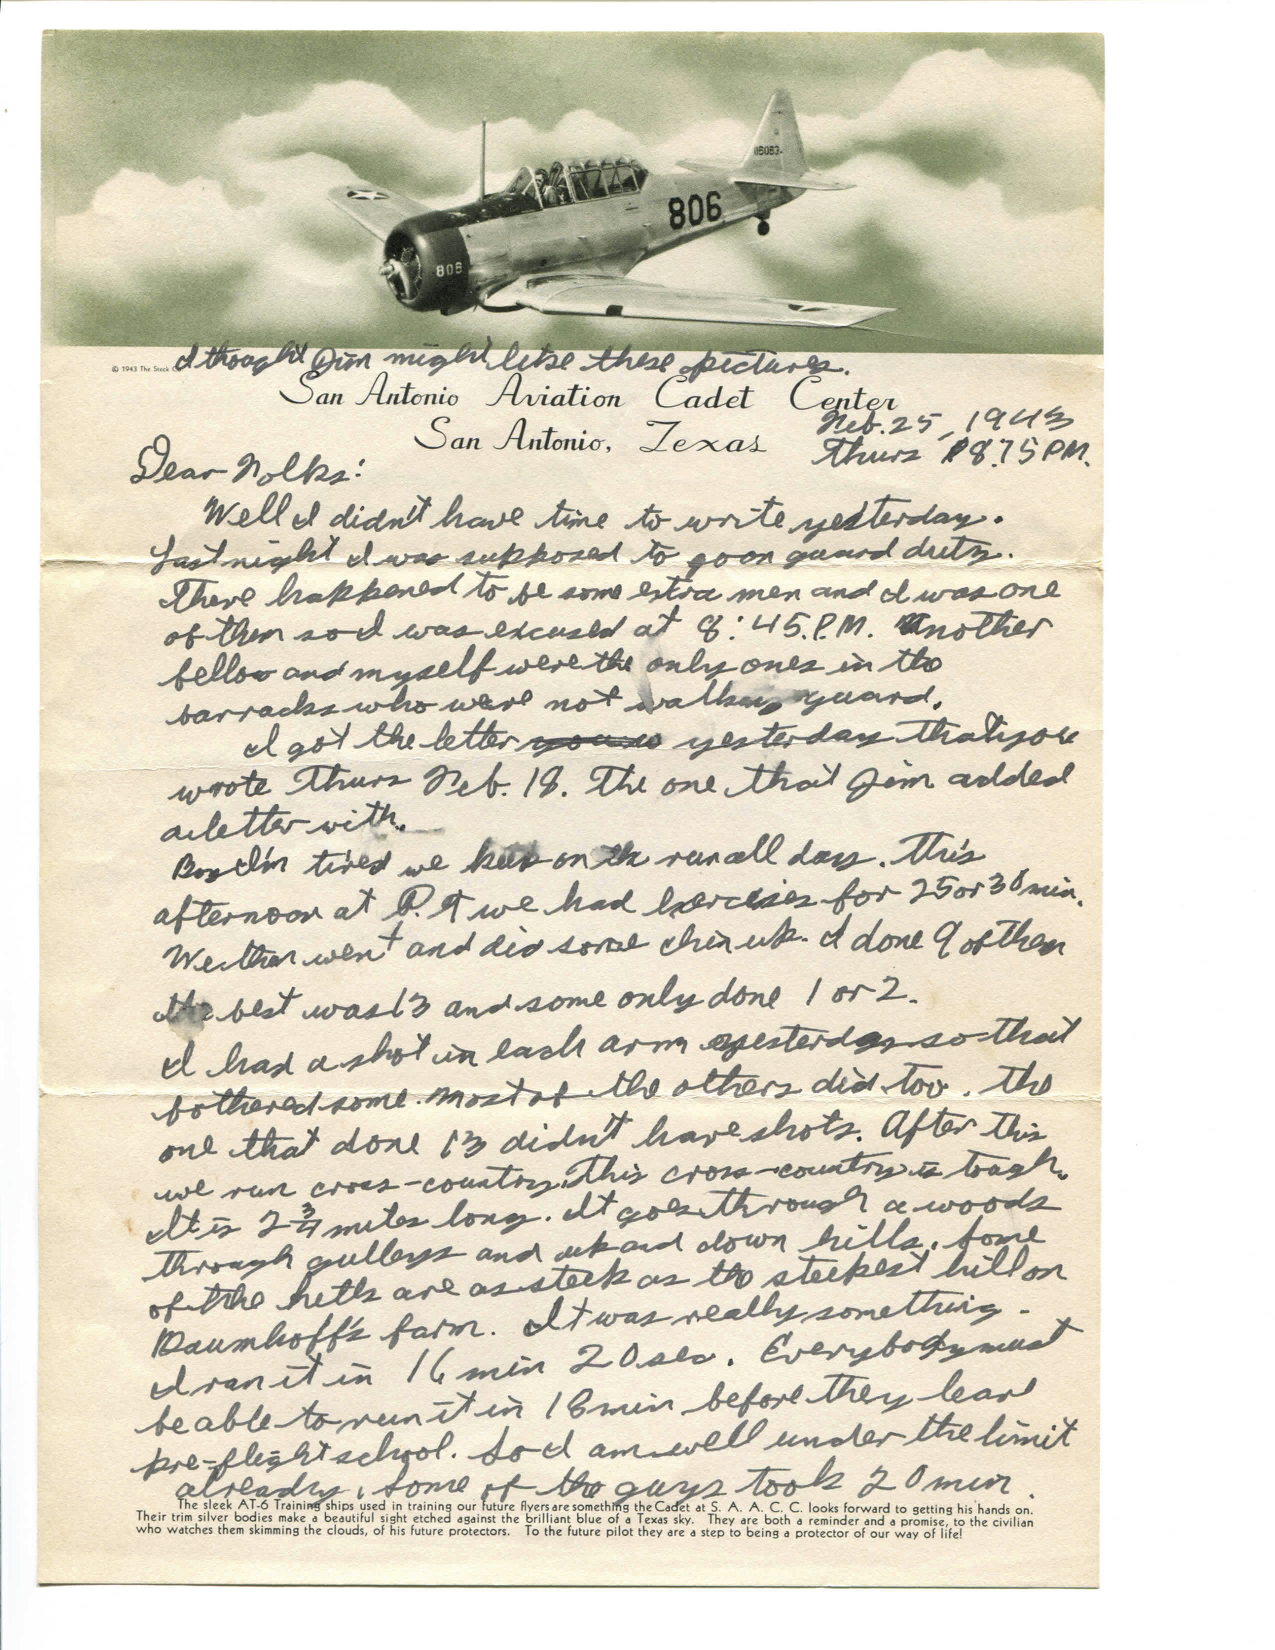 116083
806
806
© 1943 The Steck Co.
I thought Jim might like these pictures.
San Antonio Aviation Cadet Center
San Antonio, Texas
Feb. 25, 1943
Thurs 8:15 P.M.
Dear Folks:
Well I didn't have time to write yesterday.
Last night I was supposed to go on guard duty.
There happened to be some extra men and I was one
of them so I was excused at 8:45 P.M. Another
fellow and myself were the only ones in the
barracks who were not walking guard.
I got the letter yesterday that you
wrote Thurs Feb. 18. The one that Jim added
a letter with.
Boy I'm tired we kept on the run all day. This
afternoon at P.T we had exercises for 25 or 30 min.
We then went and did some chin up. I done 9 of them
the best was 13 and some only done 1 or 2.
I had a shot in each arm yesterday so that
bothered some. Most of the others did too. The
one that done 13 didn't have shots. After this
we run cross-country. This cross-country is tough.
It is 2 3/4 miles long. It goes through a woods
through gulleys and up and down hills. Some
of the hills are as steep as the steepest hill on
Baumhoff's farm. It was really something.
I ran it in 16 min 20 sec. Everybody must
be able to run it in 18 min before they leave
pre-flight school. So I am well under the limit
already. Some of the guys took 20 min.
The sleek AT-6 Training ships used in training our future flyers are something the Cadet at S. A. A. C. C. looks forward to getting his hands on.
Their trim silver bodies make a beautiful sight etched against the brilliant blue of a Texas sky. They are both a reminder and a promise, to the civilian
who watches them skimming the clouds, of his future protectors. To the future pilot they are a step to being a protector of our way of life!